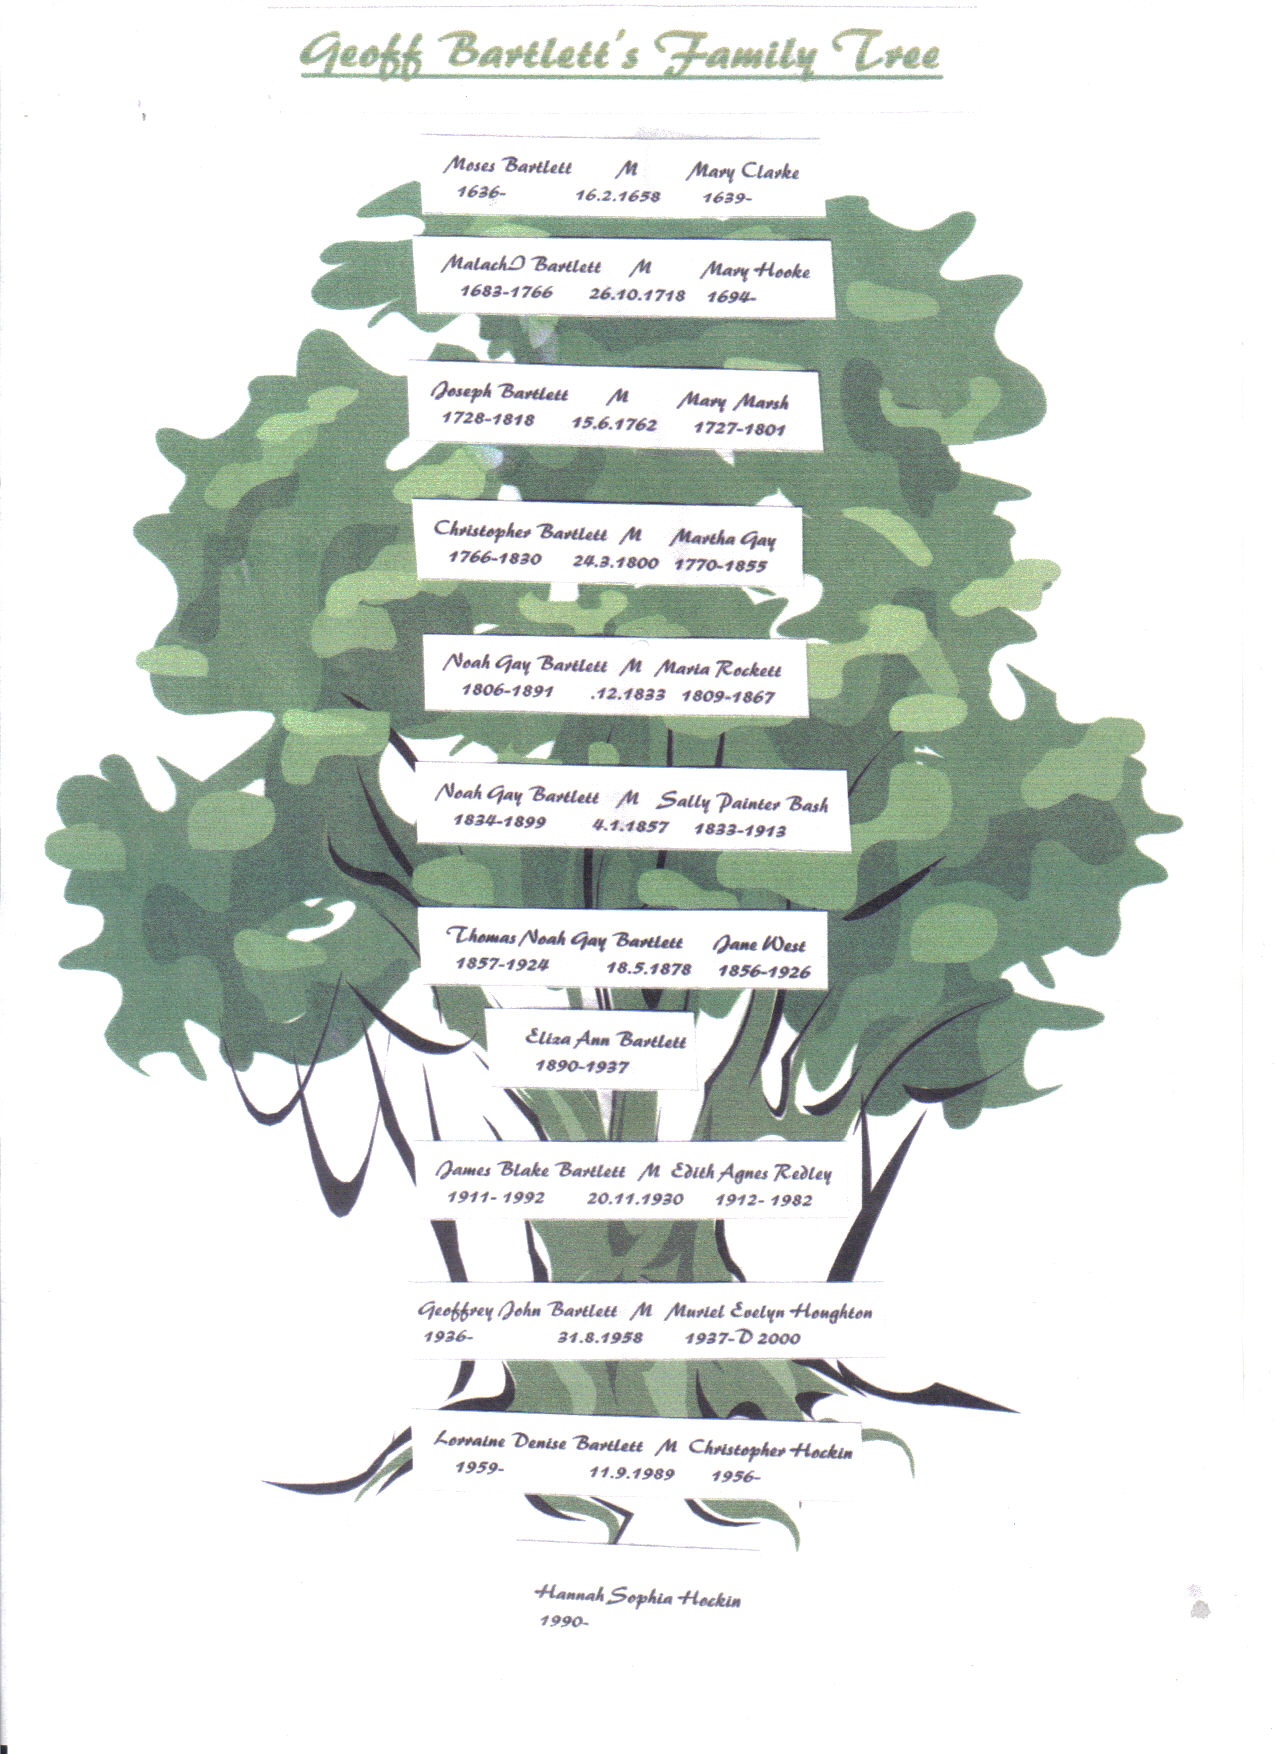 Geoff Bartlett's Family Tree
Moses Bartlett M Mary Clarke
1636- 16.2.1658 1639-
MalachI Bartlett M Mary Hooke
1683-1766 26.10.1718 1694-
Joseph Bartlett M Mary Marsh
1728-1818 15.6.1762 1727-1801
Christopher Bartlett M Martha Gay
1766-1830 24.3.1800 1770-1855
Noah Gay Bartlett M Maria Rockett
1806-1891 .12.1833 1809-1867
Noah Gay Bartlett M Sally Painter Bash
1834-1899 4.1.1857 1833-1913
Thomas Noah Gay Bartlett Jane West
1857-1924 18.5.1878 1856-1926
Eliza Ann Bartlett
1890-1937
James Blake Bartlett M Edith Agnes Redley
1911- 1992 20.11.1930 1912- 1982
Geoffrey John Bartlett M Muriel Evelyn Houghton
1936- 31.8.1958 1937-D 2000
Lorraine Denise Bartlett M Christopher Hockin
1959- 11.9.1989 1956-
Hannah Sophia Hockin
1990-